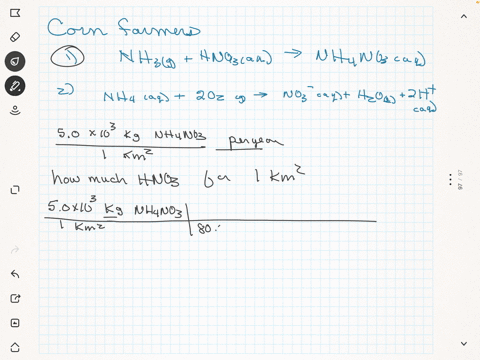 Corn farmers
1) NH3(g) + HNO3(aq) → NH4NO3(aq)
2) NH4(aq) + 2O2 g → NO3⁻(aq) + H2O(l) + 2H⁺(aq)
5.0 × 10³ Kg NH4NO3 per year
1 Km²
how much HNO3 for 1 Km²
5.0×10³ Kg NH4NO3
1 Km² 80.